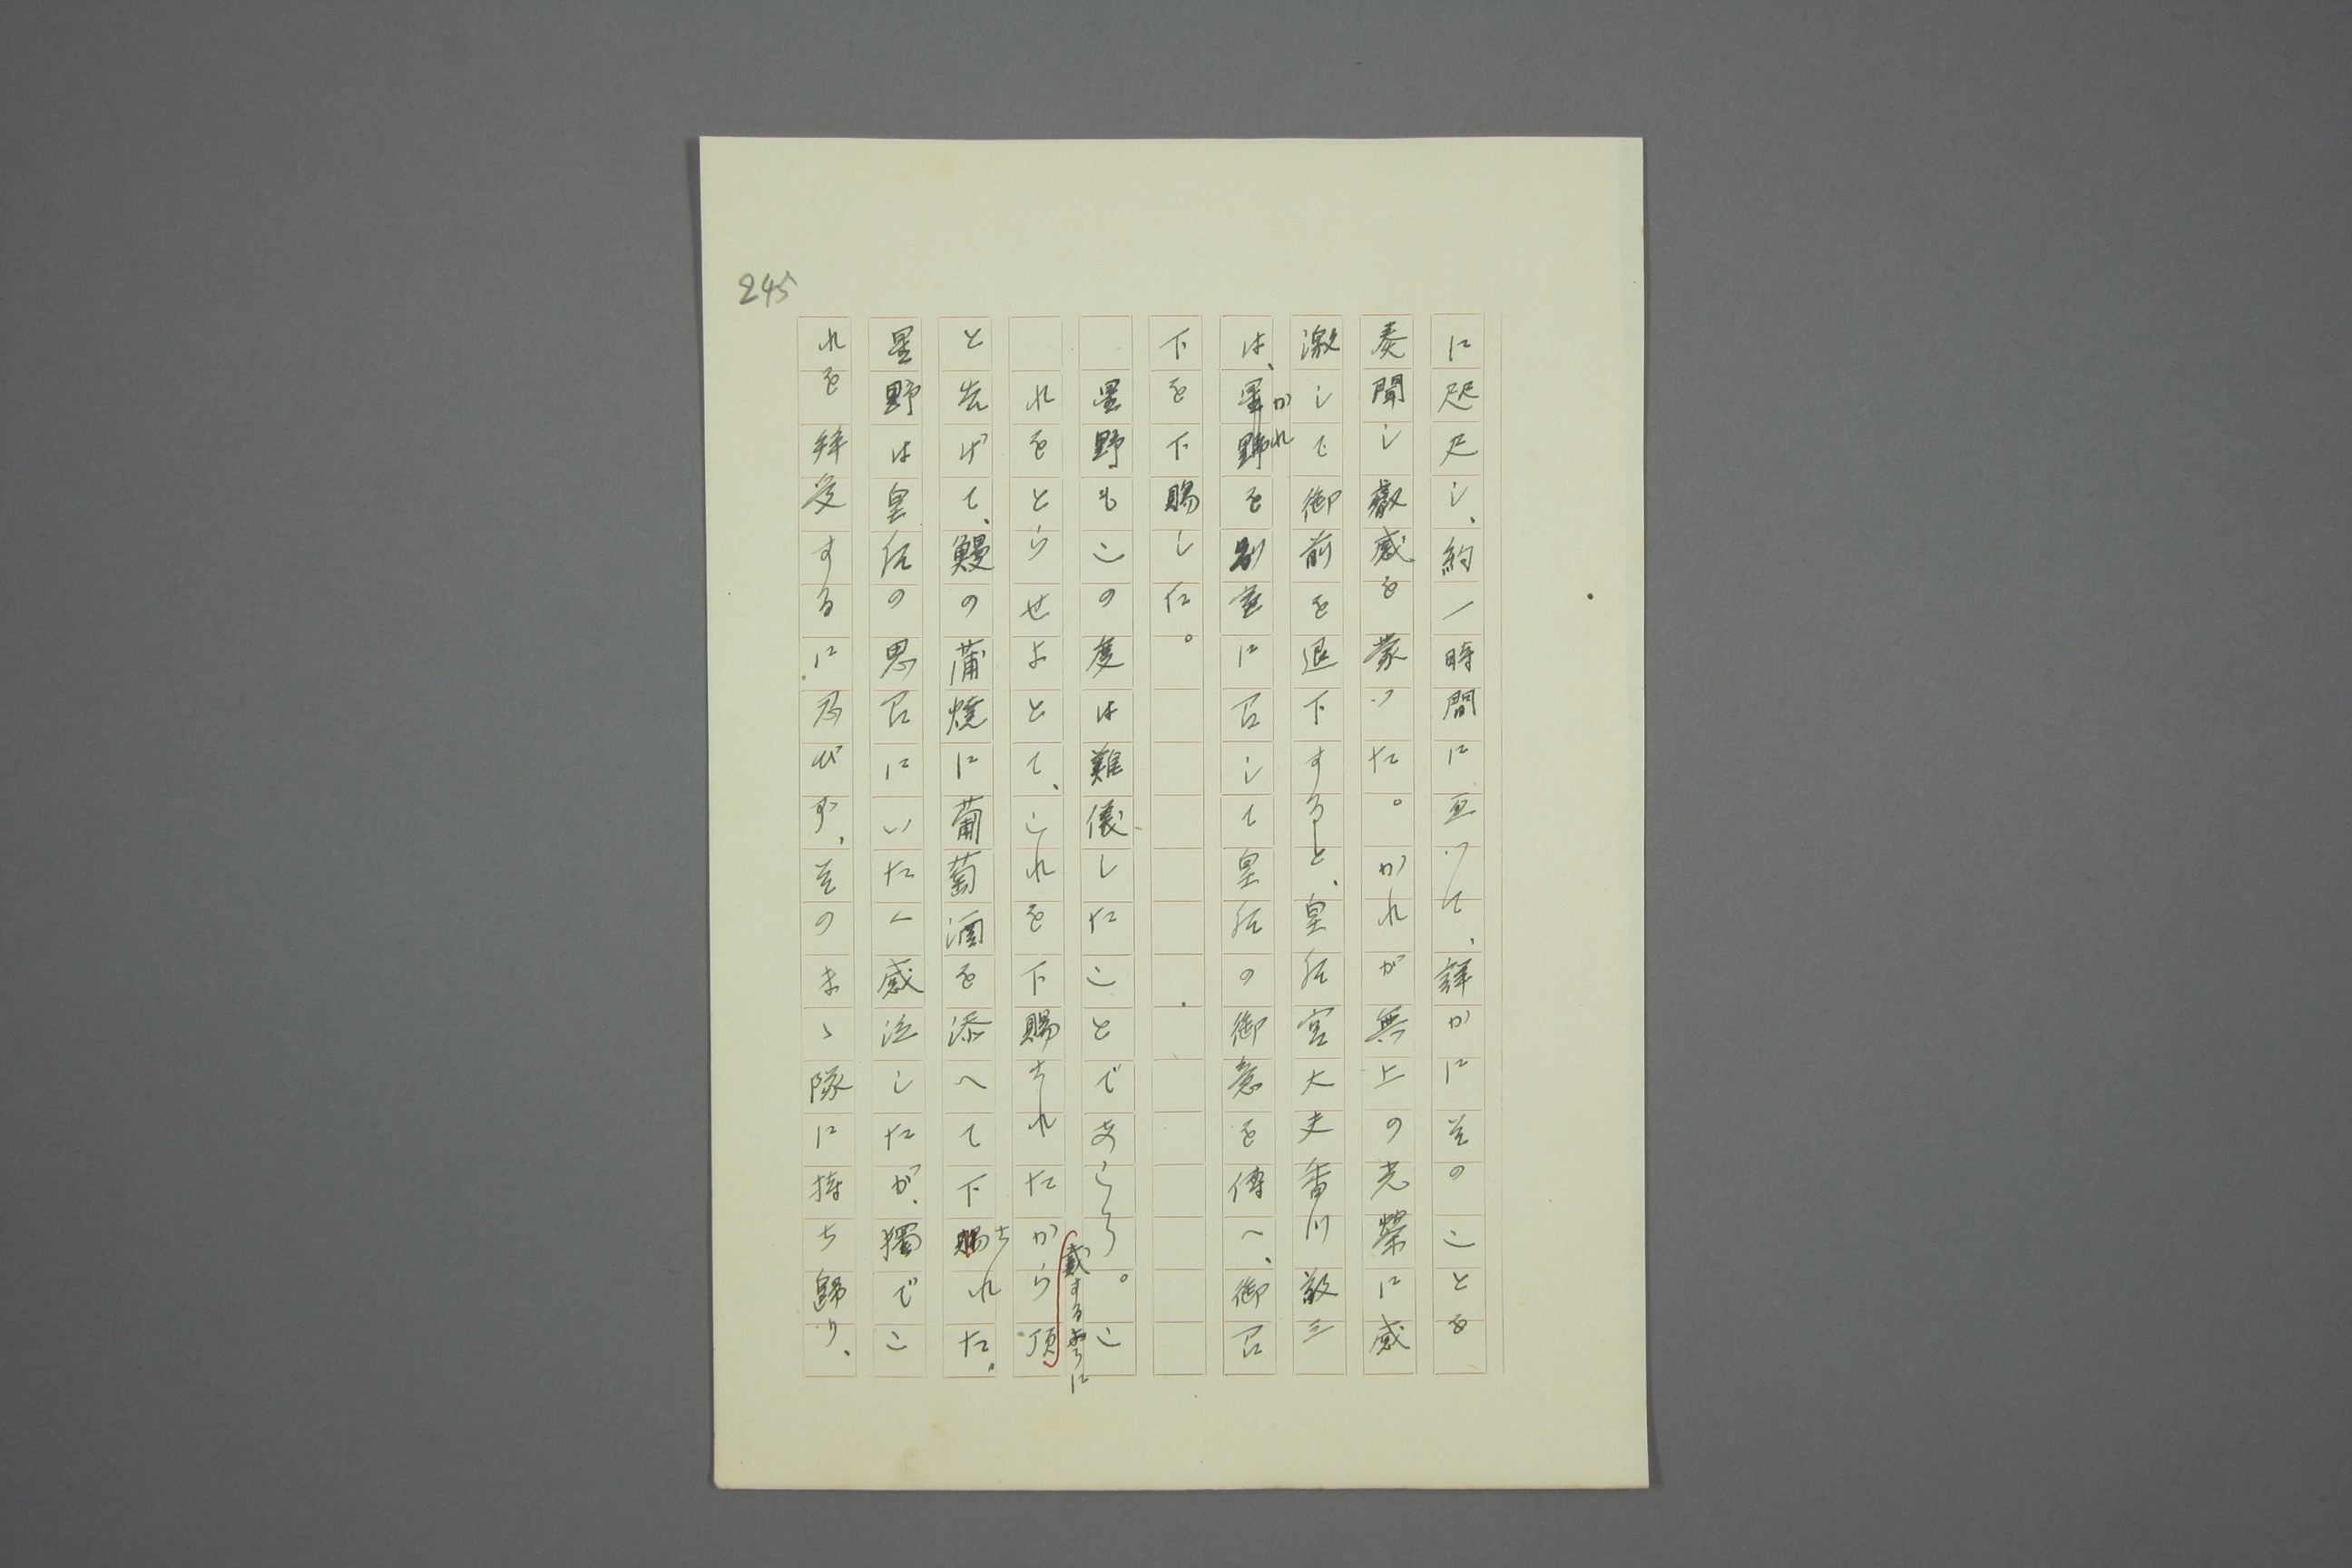 245
に咫尺し、約一時間に亘つて、詳かにそのことを
奏聞し叡感を蒙つた。かれが無上の光榮に感
激して御前を退下すると、皇后宮大夫香川敬三
は、かれを別室に召して皇后の御意を傳へ、御召
下を下賜した。
星野もこの度は難儀したことであらう。こ
れをとらせよとて、これを下賜されたから頂
戴するやうに
と告げて、鰻の蒲燒に葡萄酒を添へて下賜された。
星野は皇后の思召にいたく感泣したが、獨でこ
れを拜受するに忍びず、そのまゝ隊に持ち歸り、